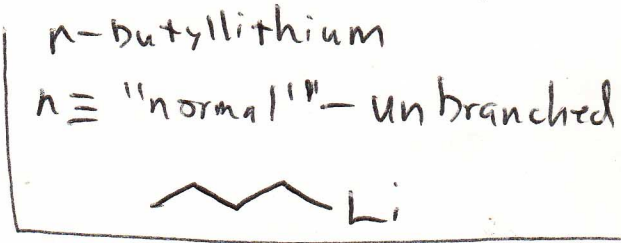 n-butyllithium
n≡ "normal"- unbranched
Li